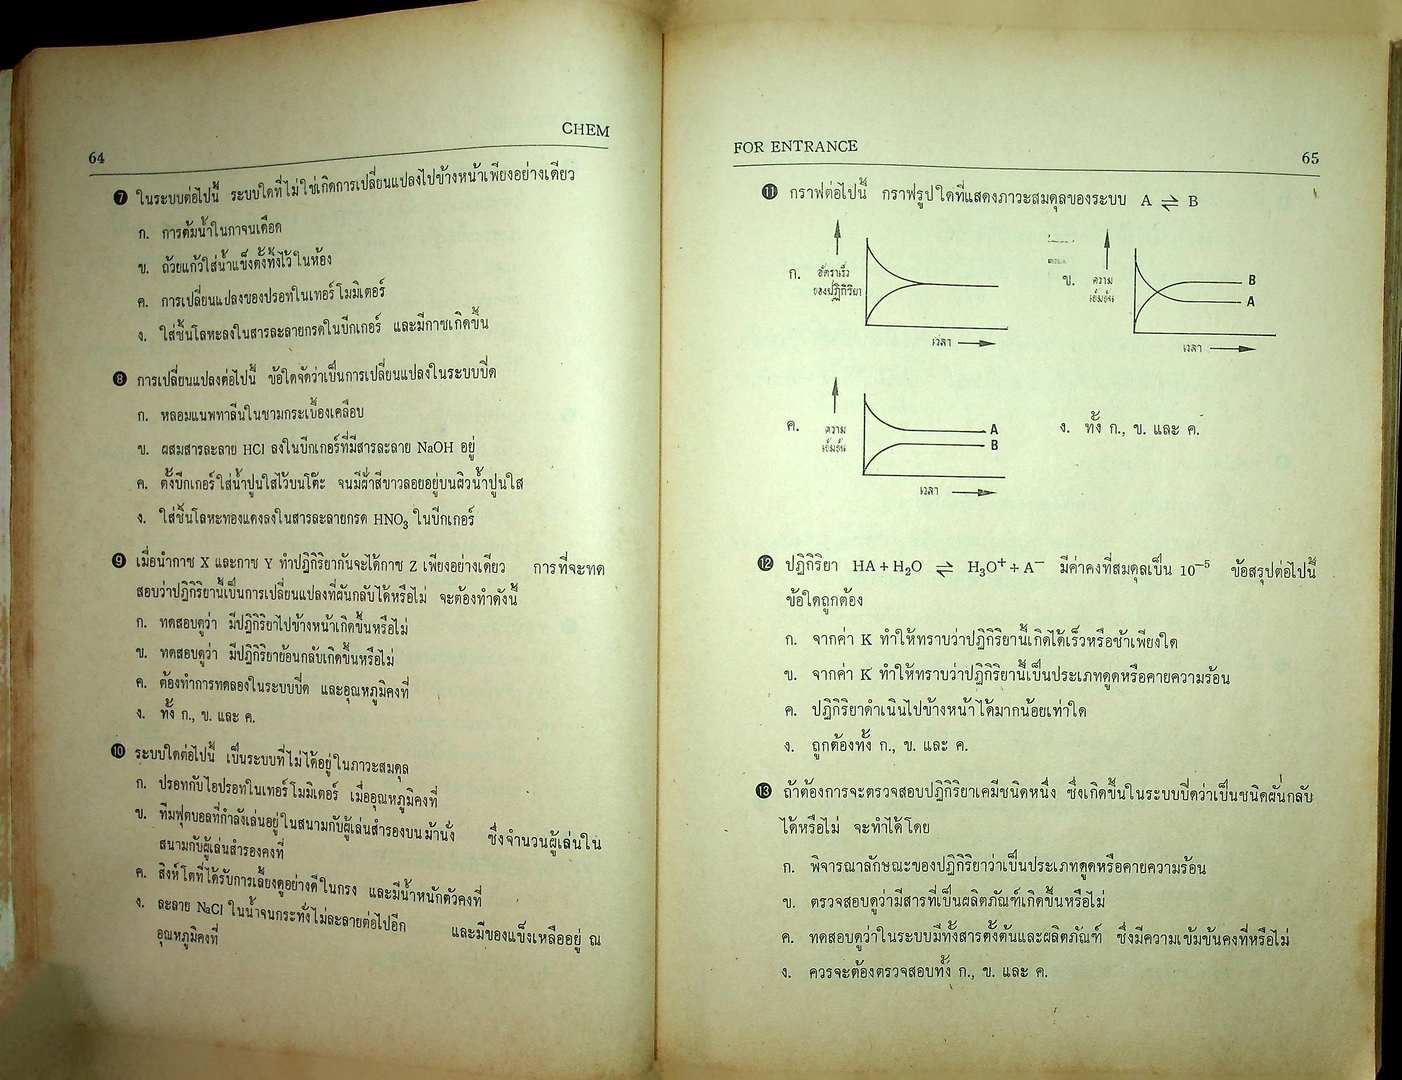 64
CHEM
7 ในระบบต่อไปนี้ ระบบใดที่ไม่ใช่เกิดการเปลี่ยนแปลงไปข้างหน้าเพียงอย่างเดียว
ก. การต้มน้ำในกาจนเดือด
ข. ถ้วยแก้วใส่น้ำแข็งตั้งทิ้งไว้ในห้อง
ค. การเปลี่ยนแปลงของปรอทในเทอร์โมมิเตอร์
ง. ใส่ชิ้นโลหะลงในสารละลายกรดในบีกเกอร์ และมีกาซเกิดขึ้น
8 การเปลี่ยนแปลงต่อไปนี้ ข้อใดจัดว่าเป็นการเปลี่ยนแปลงในระบบปิด
ก. หลอมแนพทาลีนในชามกระเบื้องเคลือบ
ข. ผสมสารละลาย HCl ลงในบีกเกอร์ที่มีสารละลาย NaOH อยู่
ค. ตั้งบีกเกอร์ใส่น้ำปูนใสไว้บนโต๊ะ จนมีฝ้าสีขาวลอยอยู่บนผิวน้ำปูนใส
ง. ใส่ชิ้นโลหะทองแดงลงในสารละลายกรด HNO₃ ในบีกเกอร์
9 เมื่อนำกาซ X และกาซ Y ทำปฏิกิริยากันจะได้กาซ Z เพียงอย่างเดียว การที่จะทด
สอบว่าปฏิกิริยานี้เป็นการเปลี่ยนแปลงที่ผันกลับได้หรือไม่ จะต้องทำดังนี้
ก. ทดสอบดูว่า มีปฏิกิริยาไปข้างหน้าเกิดขึ้นหรือไม่
ข. ทดสอบดูว่า มีปฏิกิริยาย้อนกลับเกิดขึ้นหรือไม่
ค. ต้องทำการทดลองในระบบปิด และอุณหภูมิคงที่
ง. ทั้ง ก., ข. และ ค.
10 ระบบใดต่อไปนี้ เป็นระบบที่ไม่ได้อยู่ในภาวะสมดุล
ก. ปรอทกับไอปรอทในเทอร์โมมิเตอร์ เมื่ออุณหภูมิคงที่
ข. ทีมฟุตบอลที่กำลังเล่นอยู่ในสนามกับผู้เล่นสำรองบนม้านั่ง ซึ่งจำนวนผู้เล่นใน
สนามกับผู้เล่นสำรองคงที่
ค. สิงห์โตที่ได้รับการเลี้ยงดูอย่างดีในกรง และมีน้ำหนักตัวคงที่
ง. ละลาย NaCl ในน้ำจนกระทั่งไม่ละลายต่อไปอีก และมีของแข็งเหลืออยู่ ณ
อุณหภูมิคงที่
FOR ENTRANCE
65
11 กราฟต่อไปนี้ กราฟรูปใดที่แสดงภาวะสมดุลของระบบ A ⇌ B
ก. อัตราเร็ว
ของปฏิกิริยา
เวลา
ข. ความ
เข้มข้น
B
A
เวลา
ค. ความ
เข้มข้น
A
B
เวลา
ง. ทั้ง ก., ข. และ ค.
12 ปฏิกิริยา HA + H₂O ⇌ H₃O⁺ + A⁻ มีค่าคงที่สมดุลเป็น 10⁻⁵ ข้อสรุปต่อไปนี้
ข้อใดถูกต้อง
ก. จากค่า K ทำให้ทราบว่าปฏิกิริยานี้เกิดได้เร็วหรือช้าเพียงใด
ข. จากค่า K ทำให้ทราบว่าปฏิกิริยานี้เป็นประเภทดูดหรือคายความร้อน
ค. ปฏิกิริยาดำเนินไปข้างหน้าได้มากน้อยเท่าใด
ง. ถูกต้องทั้ง ก., ข. และ ค.
13 ถ้าต้องการจะตรวจสอบปฏิกิริยาเคมีชนิดหนึ่ง ซึ่งเกิดขึ้นในระบบปิดว่าเป็นชนิดผันกลับ
ได้หรือไม่ จะทำได้โดย
ก. พิจารณาลักษณะของปฏิกิริยาว่าเป็นประเภทดูดหรือคายความร้อน
ข. ตรวจสอบดูว่ามีสารที่เป็นผลิตภัณฑ์เกิดขึ้นหรือไม่
ค. ทดสอบดูว่าในระบบมีทั้งสารตั้งต้นและผลิตภัณฑ์ ซึ่งมีความเข้มข้นคงที่หรือไม่
ง. ควรจะต้องตรวจสอบทั้ง ก., ข. และ ค.